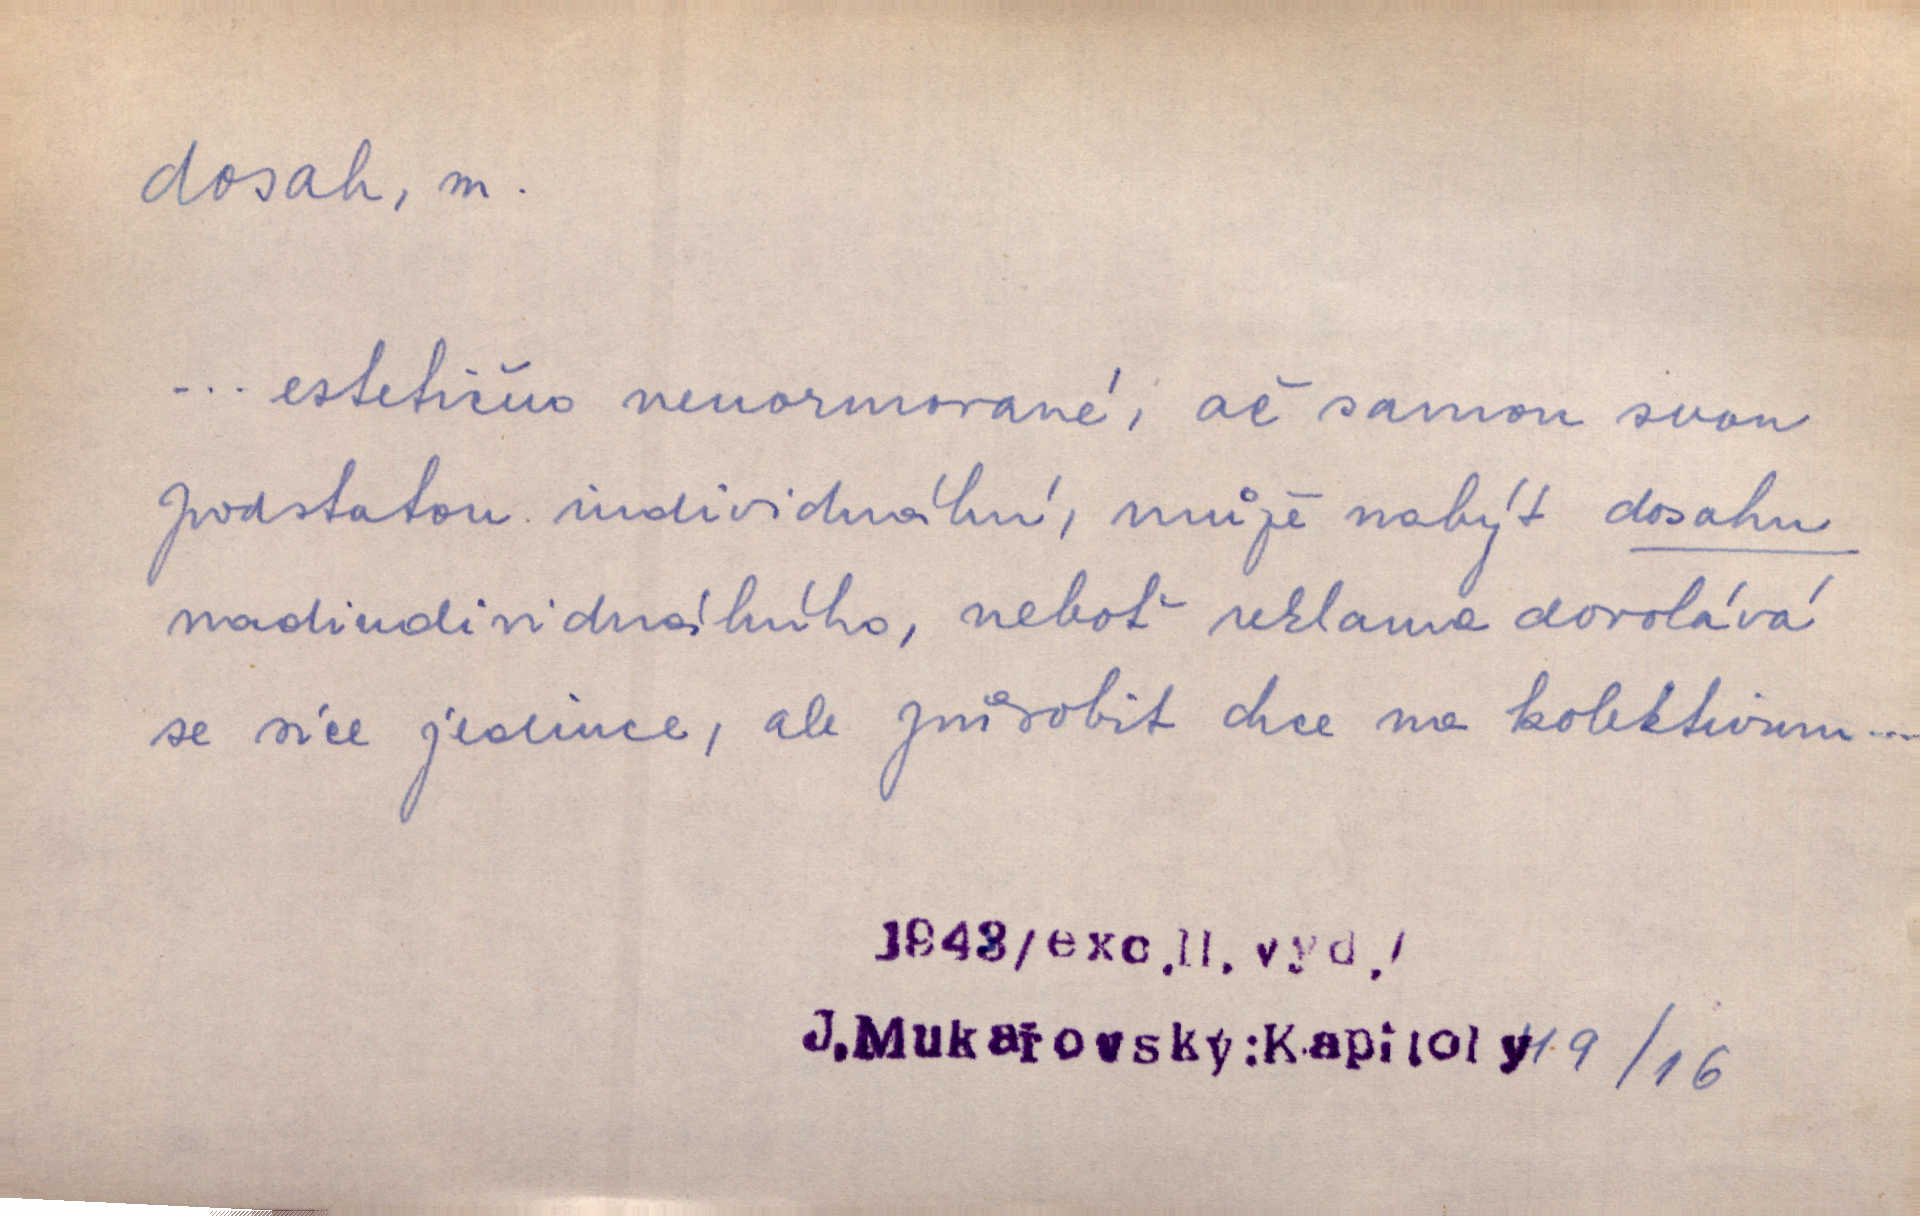 dosah, m.
... estetično nenormované, ač samou svou
podstatou individuální, může nabýt dosahu
nadindividuálního, neboť reklama dovolává
se sice jedince, ale působit chce na kolektivum...
1948/exc.II.vyd./
J.Mukařovský:Kapitoly 19/16